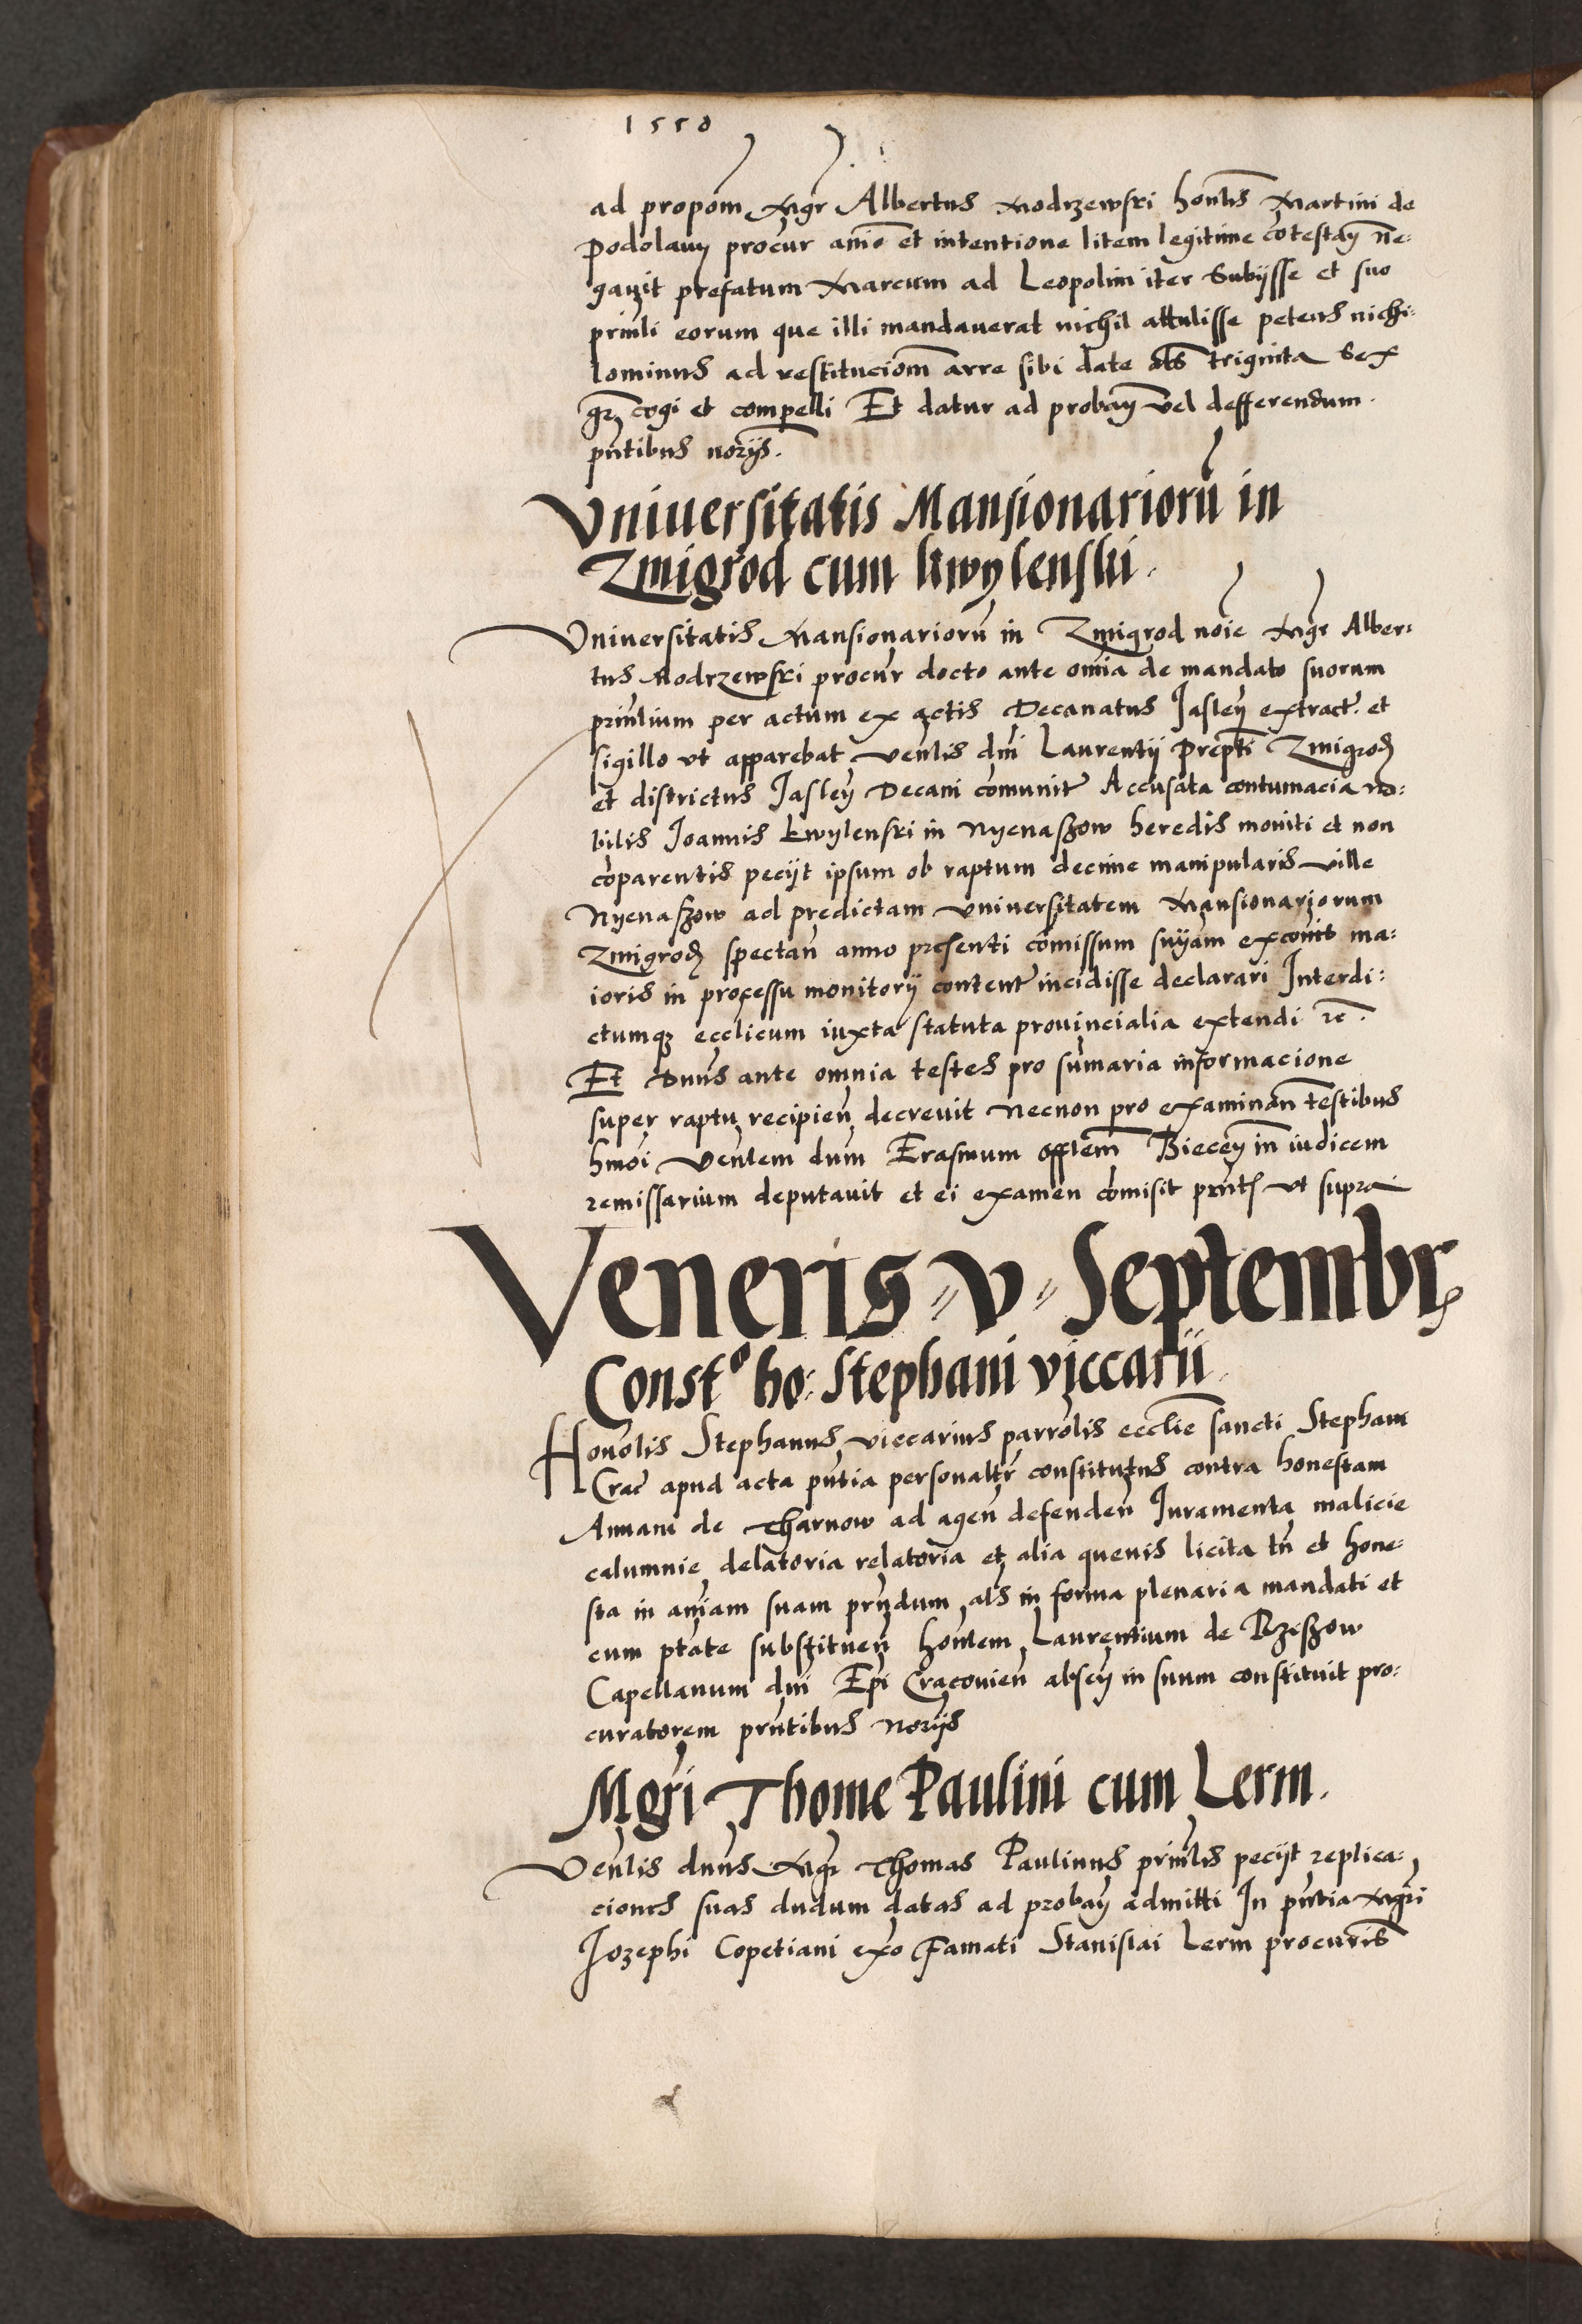 1550
ad propom Mgr Albertus Modrzewski honlis Martini de
Podolany procur anio et intentione litem legitime cotestan ne:
gavit prefatum Marcum ad Leopolim iter Subijsse et suo
prinli eorum que illi mandaverat nichil attulisse petens nichi:
lominus ad restitucionem arre sibi date als triginta Sex
grz cogi et compelli Et datur ad proban vel defferendum.
pntibus norijs.
Vniuersitatis Mansionarioru in
Zmigrod cum kwylenski.
Vniuersitatis Mansionarioru in Zmigrod noie Mgr Alber:
tus Modrzewski procur docto ante omia de mandato suorum
prinlium per actum ex actis Decanatus Jaslen extract. et
sigillo vt apparebat venlis dni Laurentij Prepti Zmigrod
et districtus Jaslen Decani comunit Accusata contumacia no:
bilis Joannis kwylenski in Nyenaszow heredis moniti et non
coparentis pecijt ipsum ob raptum decime manipularis ville
Nyenaszow ad predictam vniuersitatem Mansionariorum
Zmigrod spectan anno presenti comissum snyam excoms ma:
ioris in processu monitorij content incidisse declarari Interdi:
ctumq ecclicum iuxta statuta prouincialia extendi rc.
Et Dnus ante omnia testes pro sumaria informacione
super raptu recipien decrevit necnon pro examinan testibus
hmoi venlem dum Erasmum offlem Biecen in iudicem
remissarium deputavit et ei examen comisit pnt vt supra
Veneris v Septembr
Const° ho: Stephani viccarii.
Honolis Stephanus viccarius parrolis ecclie sancti Stephani
Crac apud acta pntia personaltr constitutus contra honestam
Annam de Tharnow ad agen defenden Iuramenta malicie
calumnie delatoria relatoria et alia quevis licita tn et hone:
sta in aniam suam prndum als in forma plenaria mandati et
cum ptate substituen honlem Laurentium de Rzeszow
Capellanum dni Epi Cracouien absen in suum constituit pro:
curatorem prntibus Norijs
Mgri Thome Paulini cum Lerm.
Venlis dnus Mgr Thomas Paulinus prinlis pecijt replica:
ciones suas dudum datas ad proban admitti In pntia Mgri
Jozephi Copetiani exo Famati Stanislai Lerm procuris